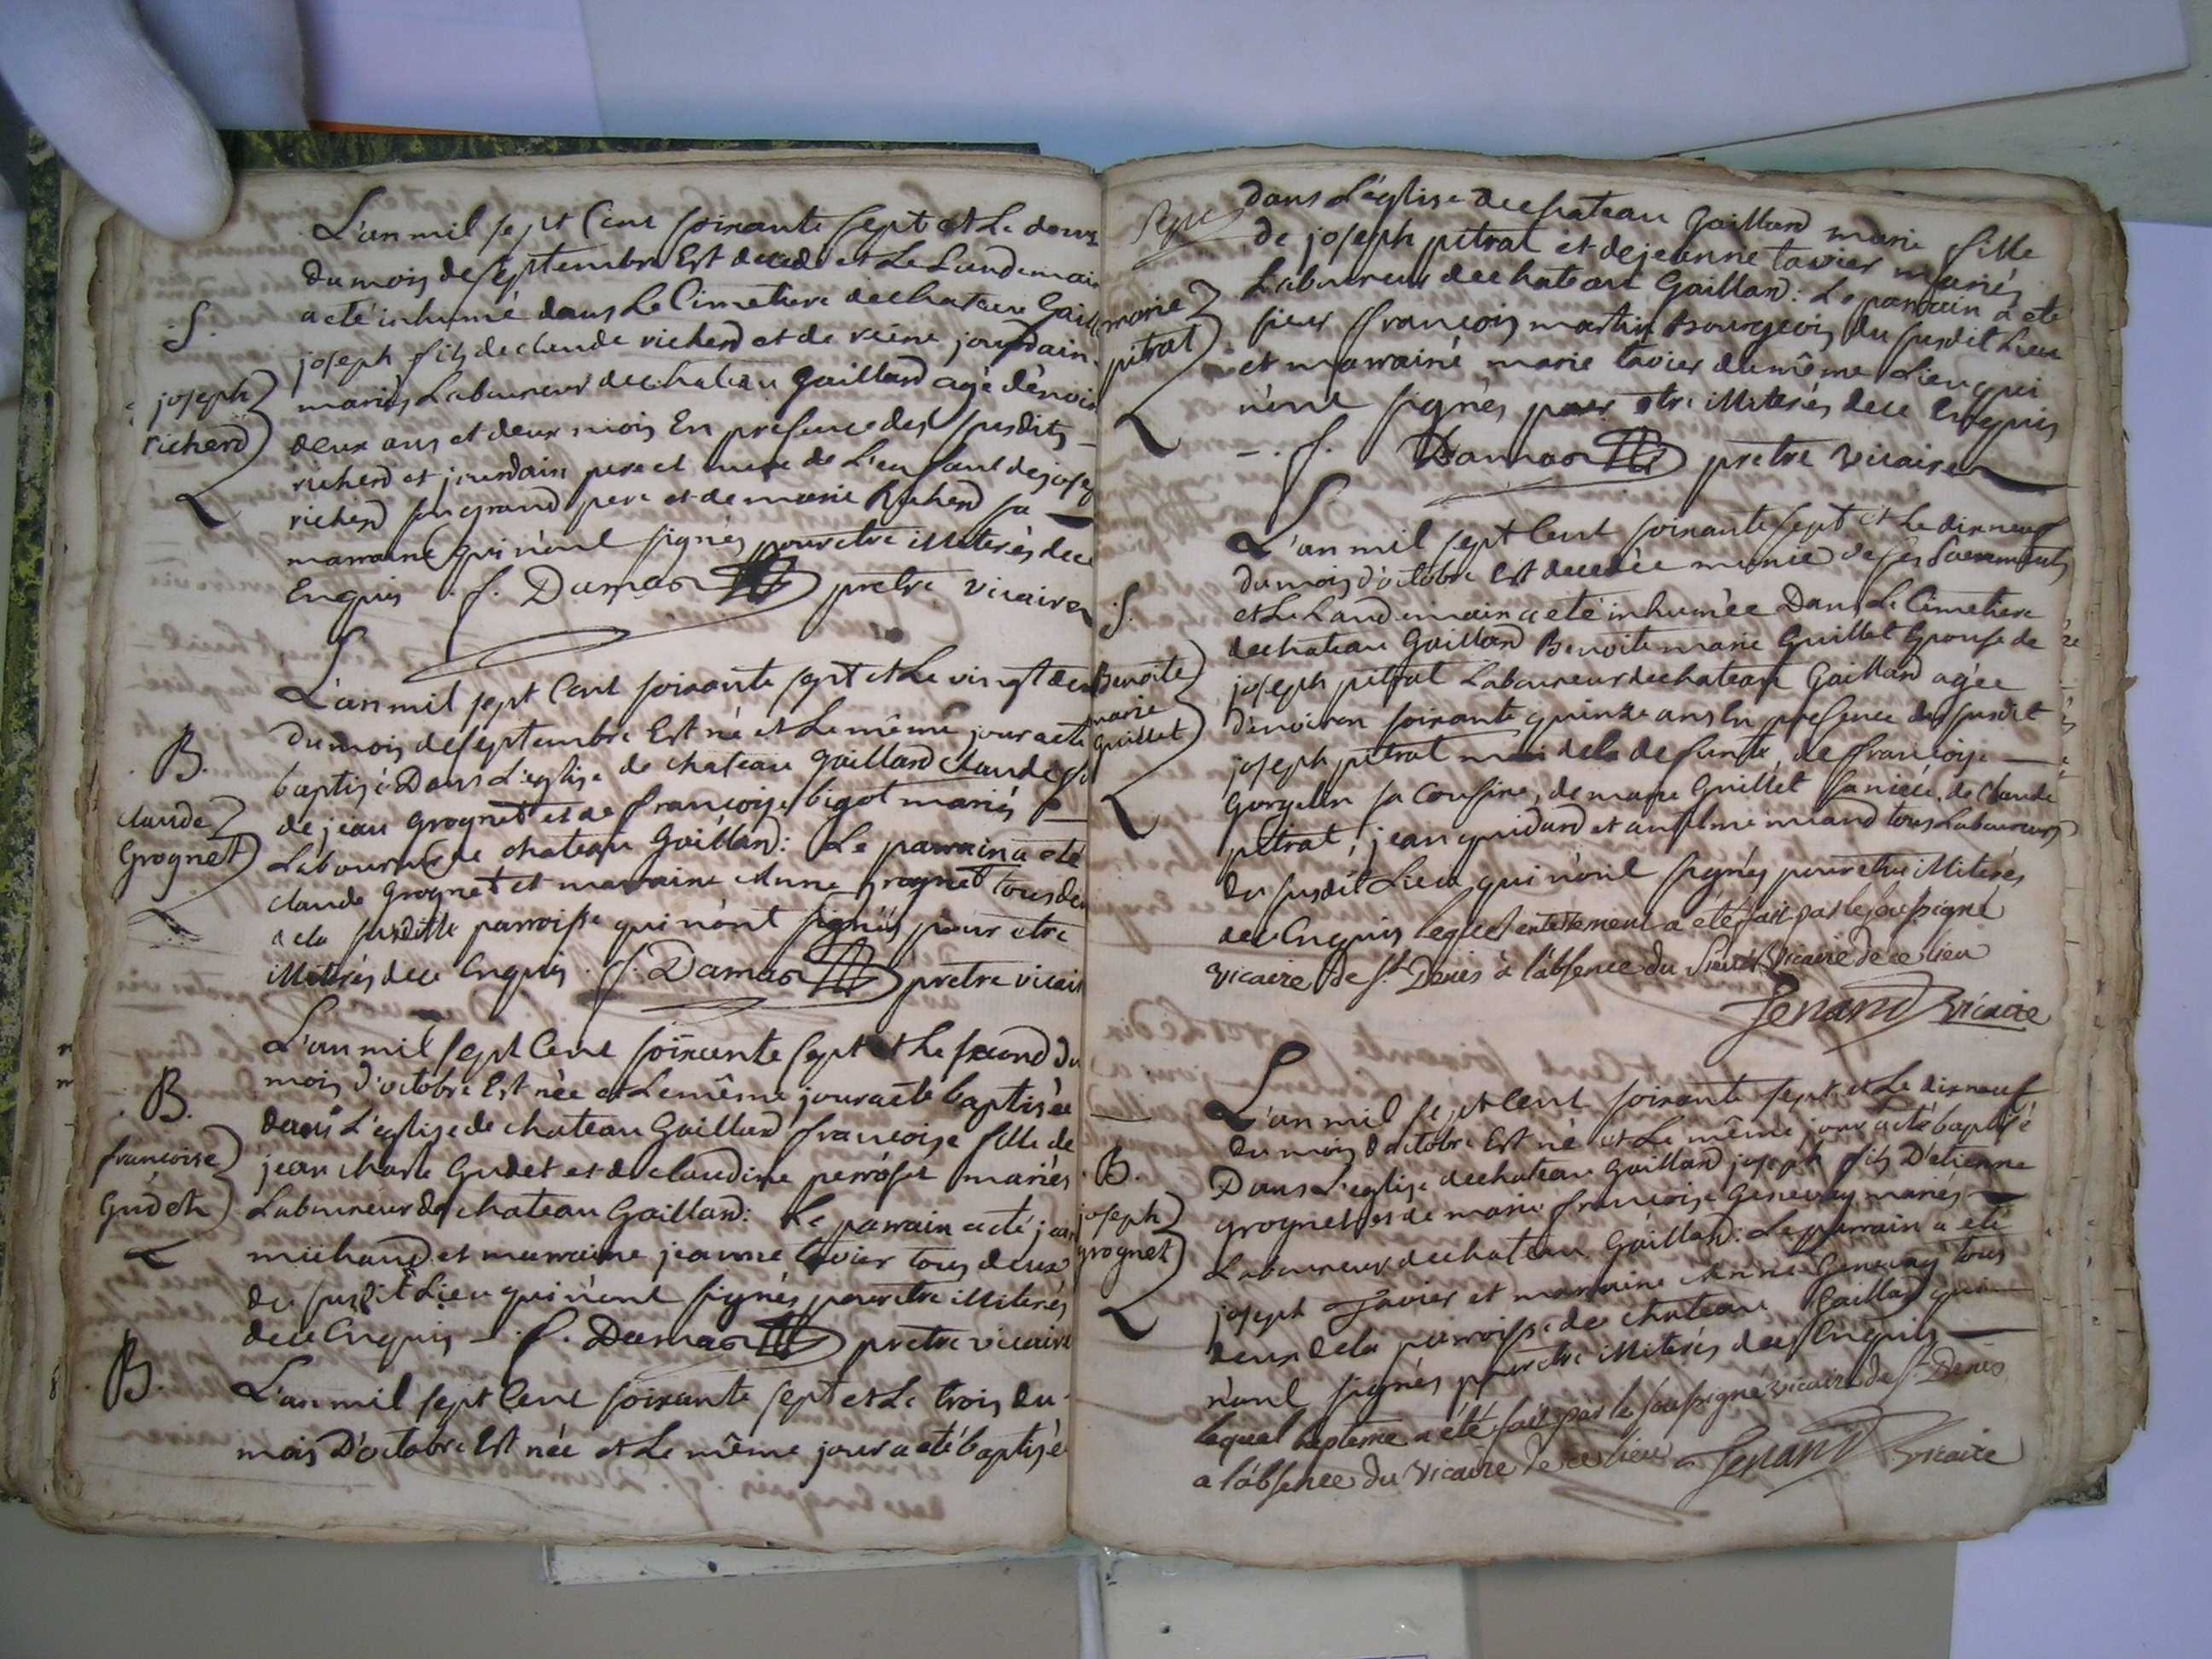 L'an mil sept Cent soixante sept et Le douze
du mois de septembre Est decedé et Le Landemain
a eté inhumé dans Le Cimetiere de chateau Gaill
S.
joseph fils de claude richerd et de reine jourdain
joseph
richerd
mariés Laboureur de chateau Gaillard agé d'enviro
deux ans et deux mois En presence des susdits
richerd et jourdain pere et mere de L'enfant de josep
richerd son grand pere et de marie Richerd sa
marraine qui n'ont signés pour etre illiterés de ce
Enquis f. Damas pretre vicaire
L'an mil sept Cent soixante sept et Le vingt deu
du mois de septembre Est né et Le même jour a eté
B.
baptisé Dans L'eglise de chateau Gaillard Claude fil
claude
Grognet
de jean Grognet et de françoise bigot mariés
Laboureur de chateau Gaillard: Le parrain a eté
claude Grognet et marraine Anne Grognet tous deu
de la susditte parroisse qui n'ont signés pour etre
illiterés de ce Enquis. f. Damas pretre vicair
L'an mil sept Cent soixante sept et Le second du
mois d'octobre Est née et Le même jour a eté baptisée
B.
dans L'eglise de chateau Gaillard françoise fille de
françoise
Gudet
jean charle Gudet et de claudine perroset mariés
Laboureur de chateau Gaillard: Le parrain a eté jean
michaud et marraine jeanne tavier tous deux
du susdit Lieu qui n'ont signés pour etre illiterés
de ce Enquis f. Damas pretre vicaire
B.
L'an mil sept Cent soixante sept et Le trois du
mois D'octobre Est née et Le même jour a eté baptisée
dans L'église de chateau Gaillard marie fille
de joseph pitrat et de jeanne tavier mariés
marie
pitrat
Laboureur de chateau Gaillard: Le parrain a eté
sieur françois martin Bourgeois du susdit Lieu
et marraine marie tavier du même Lieu qui
n'ont signés pour etre illiterés de ce Enquis
f. Damas pretre vicaire
L'an mil sept Cent soixante sept et Le dix neuf
du mois d'octobre Est decedée munie de ses Sacrements
S.
et Le Landemain a eté inhumée Dans Le Cimetiere
de chateau Gaillard Benoite marie Guillet Epouse de
Benoite
marie
Guillet
joseph pitrat Laboureur de chateau Gaillard agée
d'environ soixante quinze ans En presence du susdit
joseph pitrat mari de la defunte, de françoise
sa Cousine, de marie Guillet sa niéce, de Claude
pitrat, jean guidard et anselme tous Laboureurs
du susdit Lieu qui n'ont signés pour etre illiterés
de ce Enquis lequel enterrement a été fait par le soussigné
vicaire de St. Denis à l'absence du Sieur Vicaire de ce lieu
Fenand vicaire
L'an mil sept Cent soixante sept et Le dix neuf
du mois d'octobre Est né et Le même jour a eté baptisé
B.
Dans L'eglise de chateau Gaillard joseph fils D'etienne
joseph
grognet
grognet et de marie françoise Genevay mariés
Laboureur de chateau Gaillard: Le parrain a eté
joseph Javier et marraine Anne Genevay tous
deux de la parroisse de chateau Gaillard qui
n'ont signés pour etre illiterés de ce Enquis
lequel bapteme a été fait par le soussigné vicaire de St. Denis
a l'absence du vicaire de ce lieu Fenand vicaire